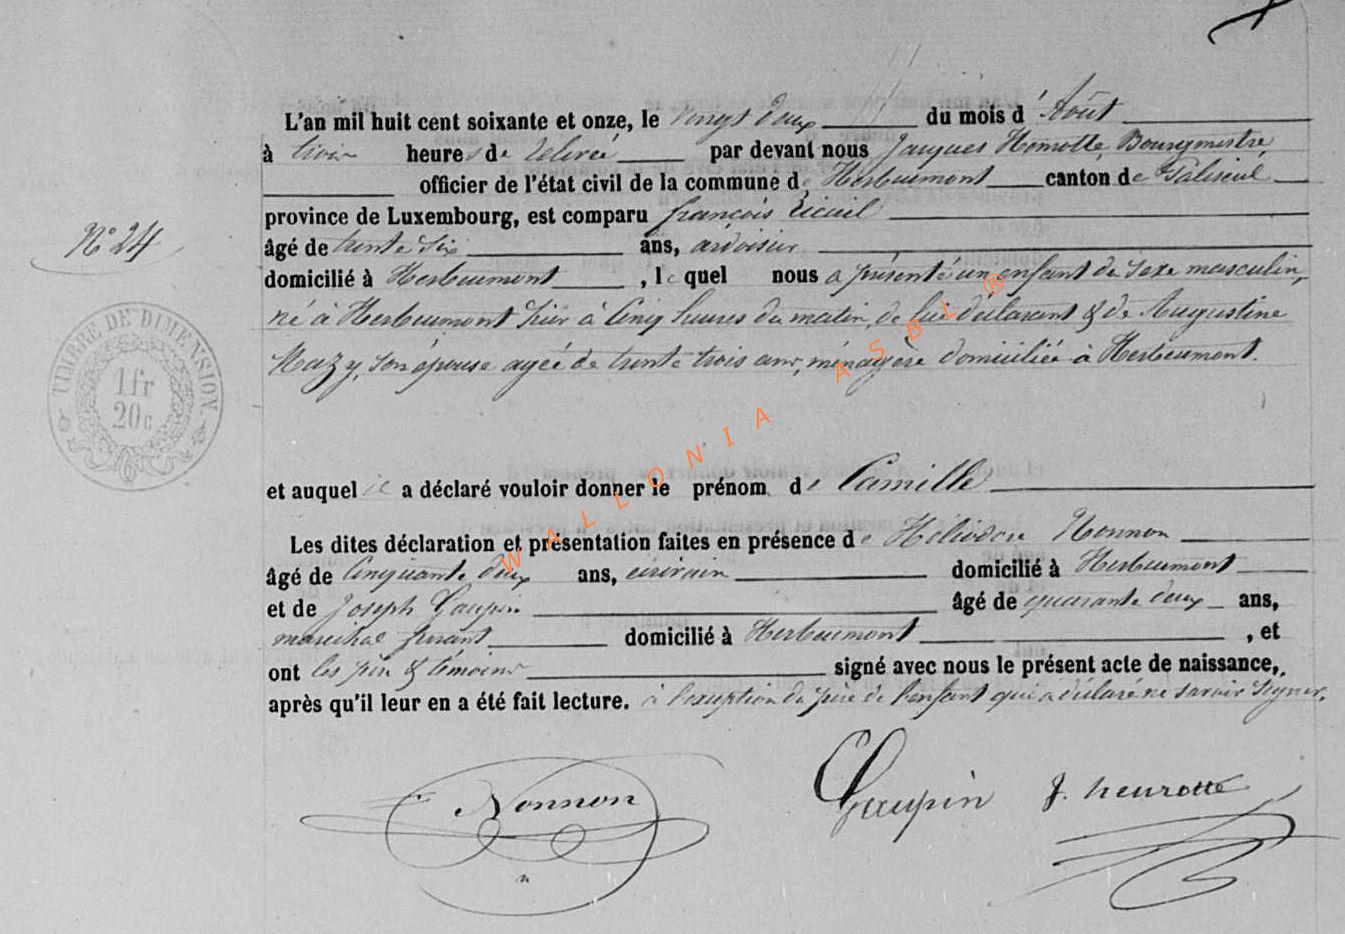 L'an mil huit cent soixante et onze, le vingt deux du mois d'Août
à trois heures de relevée par devant nous Jacques Henrotte, Bourgmestre,
officier de l'état civil de la commune de Herbeumont canton de Paliseul
province de Luxembourg, est comparu françois
N° 24
âgé de trente six ans, ardoisier
domicilié à Herbeumont, lequel nous a présenté un enfant de sexe masculin,
né à Herbeumont hier à Cinq heures du matin, de lui déclarant & de Augustine
Mazy, son épouse agée de trente trois ans, ménagère domiciliée à Herbeumont.
TIMBRE DE DIMENSION.
1fr
20c
WALLONIA ASBL ®
et auquel il a déclaré vouloir donner le prénom de Camille
Les dites déclaration et présentation faites en présence de Héliodore Nonnon
âgé de Cinquante deux ans, écrivain domicilié à Herbeumont
et de Joseph Gaupin âgé de quarante deux ans,
maréchal ferrant domicilié à Herbeumont, et
ont les père & témoins signé avec nous le présent acte de naissance,
après qu'il leur en a été fait lecture. à l'exception du père de l'enfant qui a déclaré ne savoir signer.
Nonnon
Gaupin
J. henrotte